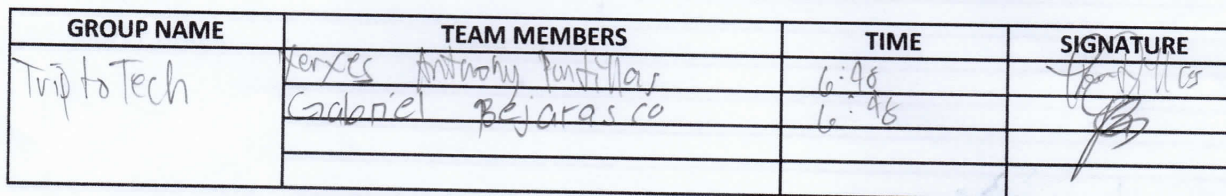 GROUP NAME TEAM MEMBERS TIME SIGNATURE
TriptoTech Xerxes Anthony Pontillas 6:48
Gabriel Bejarasco 6:48